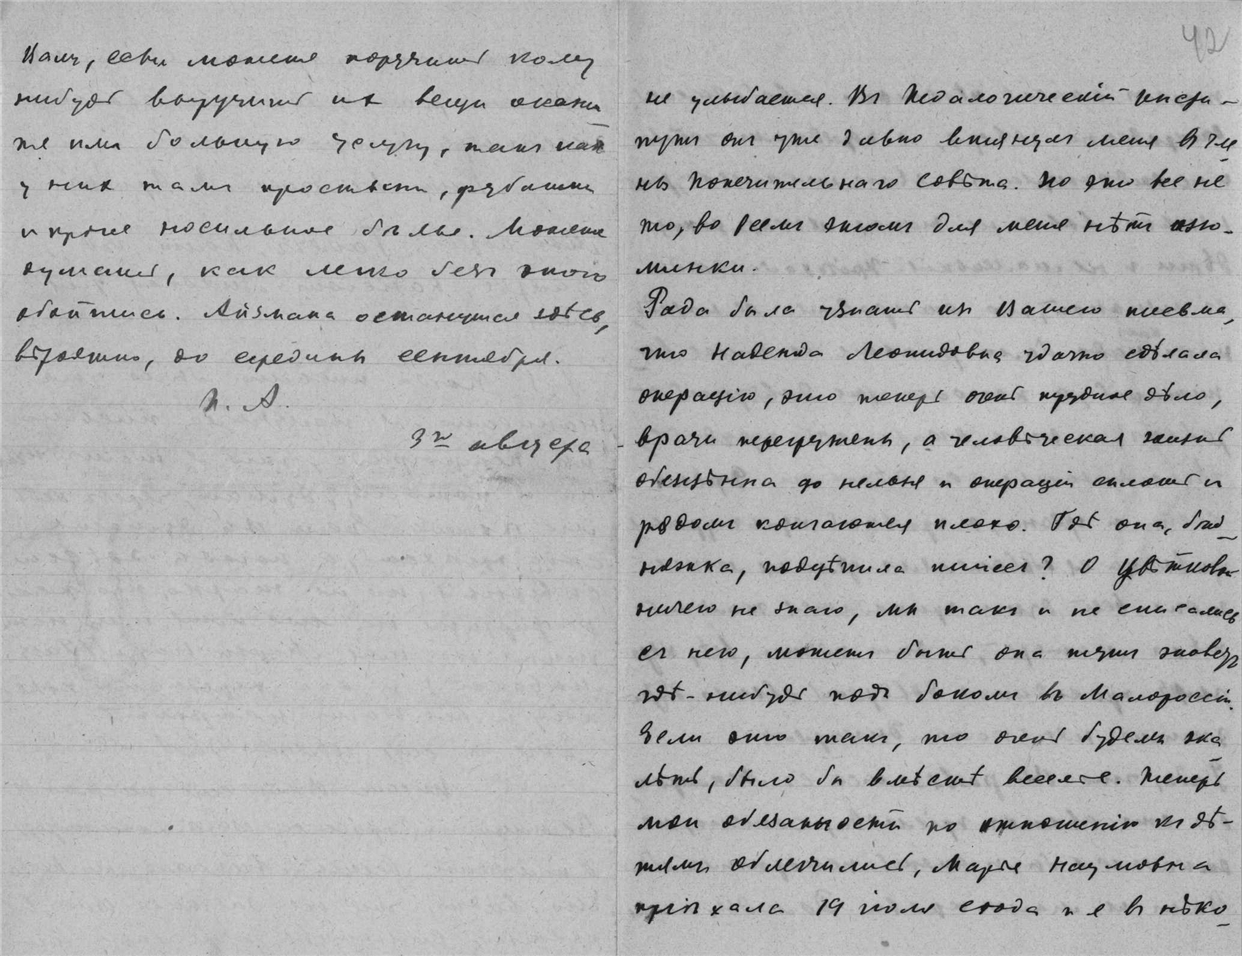 Вамъ, если можете поручить кому
нибудь выручить их вещи окажи
те имъ большую услугу, такъ какъ
у них тамъ простыни, рубашки
и проче носильное бѣлье. Можете
думать, как легко безъ этого
обойтись. Айзмана останутся здѣсь,
вѣроятно, до середины сентября.
П. А.
3го августа
42
не улыбается. Въ Педологическій инсти-
тутъ он уже давно втянулъ меня в чле
ны Попечительнаго Совѣта. Но это все не
то, во всемъ этомъ для меня нѣтъ изю-
минки.
Рада была узнать изъ Вашего письма,
что Надежда Леонидовна удачно сдѣлала
операцію, это теперь очень трудное дѣло,
врачи перегружены, а человѣческая жизнь
обезцѣнена до нельзя и операціи сплошь и
рядомъ кончаются плохо. Гдѣ она, бѣд-
няжка, подцѣпила
О Цвѣтковой
ничего не знаю, мы такъ и не списались
съ нею, можетъ быть, она тутъ живетъ
гдѣ-нибудь подъ бокомъ въ Малороссіи.
Если это такъ, то очень будемъ жа
лѣть, было бы вмѣстѣ веселѣе. Теперь
мои обязанности по отношенію къ дѣ-
тямъ облегчились, Марья Наумовна
пріѣхала 19 іюля сюда и я в нѣко-